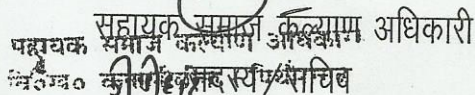 सहायक समाज कल्याण अधिकारी
सहायक समाज कल्याण अधिकारी
वि०ख०
सदस्य/सचिव